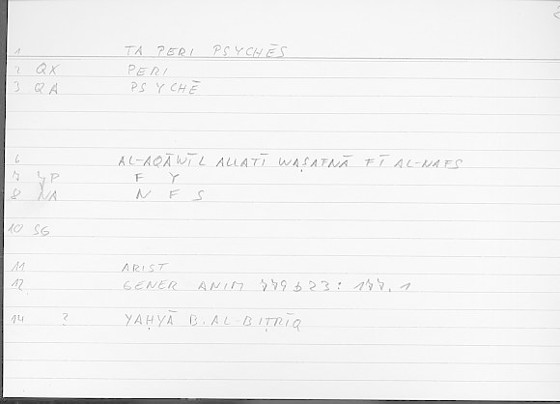 1 TA PERI PSYCHĒS
2 QX PERI
3 QA PSYCHĒ
6 AL-AQĀWĪL ALLATĪ WAṢAFNĀ FĪ AL-NAFS
7 YP F Y
8 NA N F S
10 SG
11 ARIST
12 GENER ANIM 779 b 23: 177, 1
14 ? YAḤYĀ B. AL-BIṬRĪQ